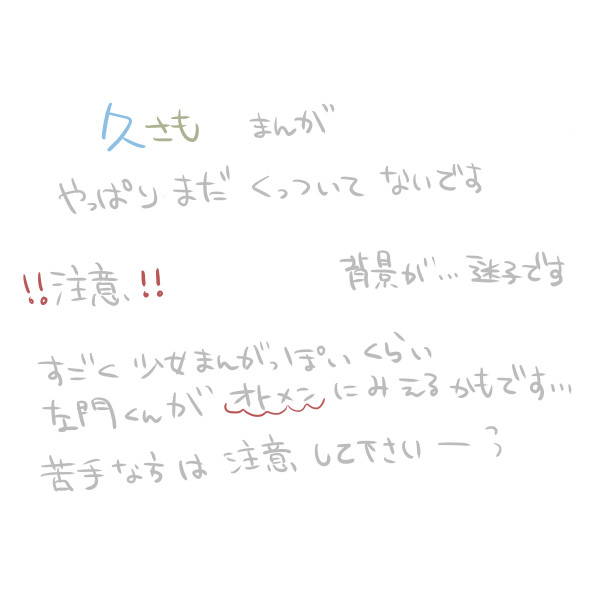 久さも まんが
やっぱり まだ くっついて ないです
!!注意!!
背景が…迷子です
すごく 少女まんがっぽいくらい
左門くんが オトメンにみえるかもです…
苦手な方は 注意して下さいーっ